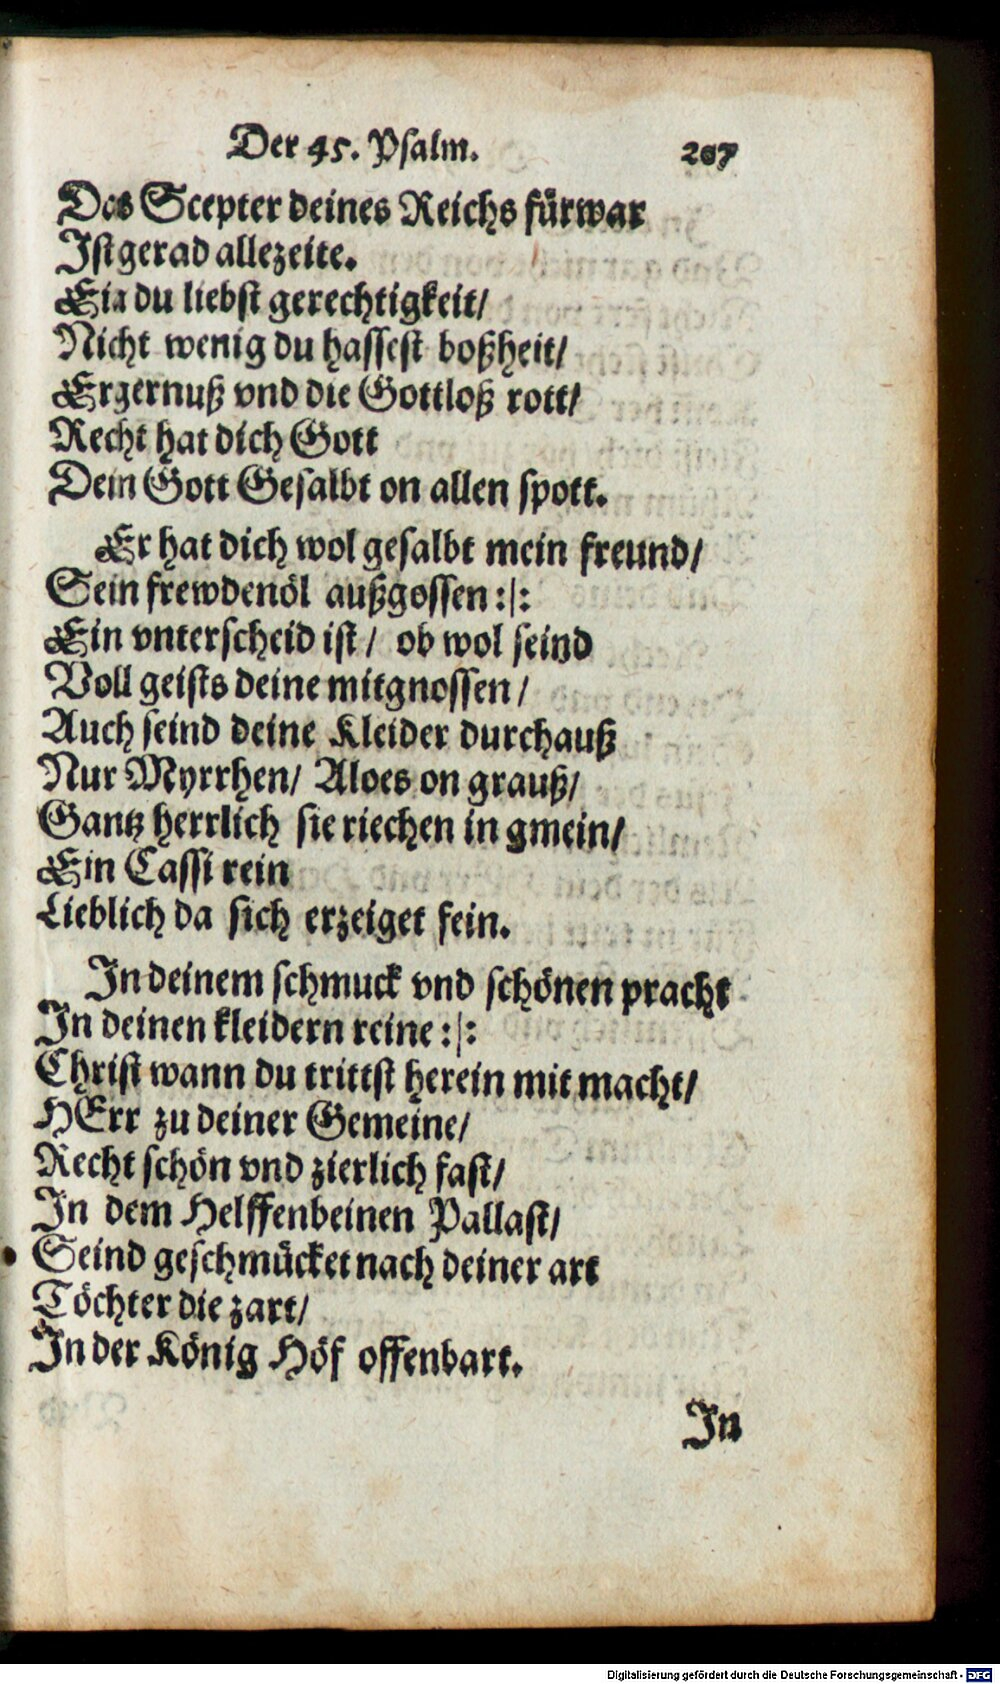 Der 45. Psalm. 207
Das Scepter deines Reichs fürwar
Ist gerad allezeite.
Eia du liebst gerechtigkeit/
Nicht wenig du hassest boßheit/
Ergernuß vnd die Gottloß rott/
Recht hat dich Gott
Dein Gott Gesalbt on allen spott.
Er hat dich wol gesalbt mein freund/
Sein frewdenöl außgossen :|:
Ein vnterscheid ist / ob wol seind
Voll geists deine mitgnossen /
Auch seind deine Kleider durchauß
Nur Myrrhen/ Aloes on grauß/
Gantz herrlich sie riechen in gmein/
Ein Cassi rein
Lieblich da sich erzeiget fein.
In deinem schmuck vnd schönen pracht
In deinen kleidern reine :|:
Christ wann du trittst herein mit macht/
HErr zu deiner Gemeine/
Recht schön vnd zierlich fast/
In dem Helffenbeinen Pallast/
Seind geschmücket nach deiner art
Töchter die zart/
In der König Höf offenbart.
In
Digitalisierung gefördert durch die Deutsche Forschungsgemeinschaft - DFG